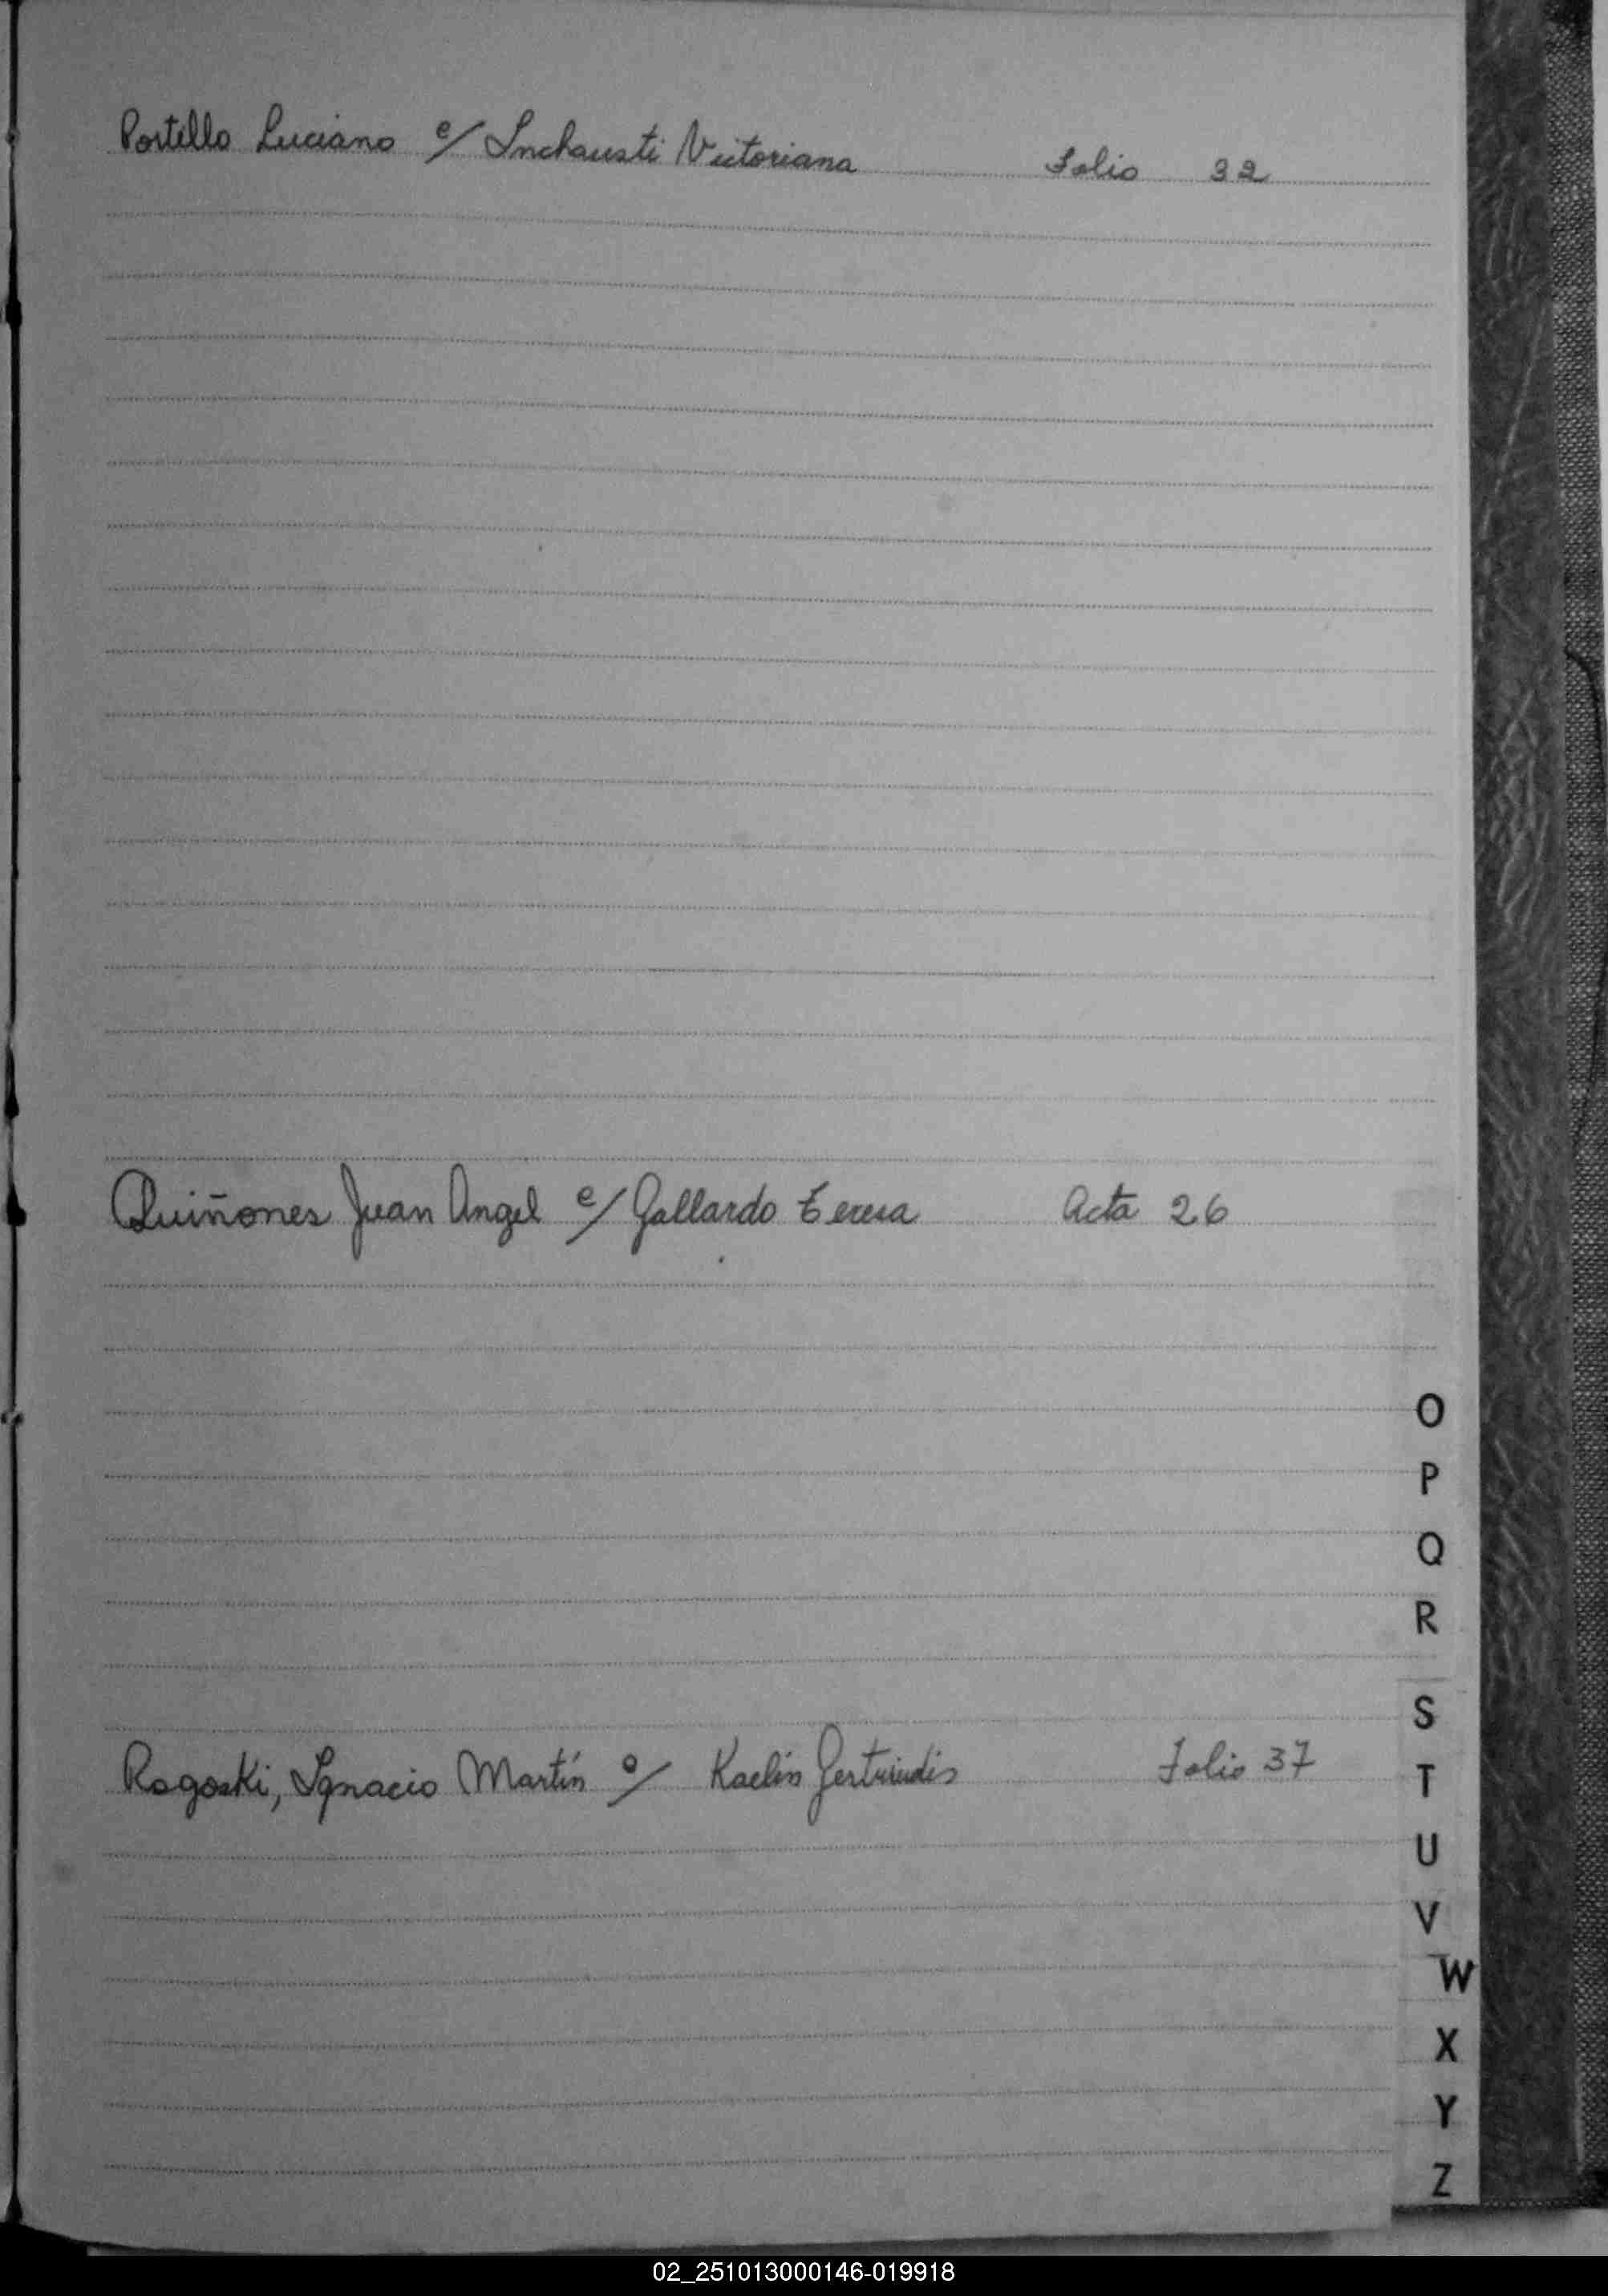 Portillo Luciano c/ Inchausti Victoriana Folio 32
Quiñones Juan Angel c/ Gallardo Teresa Acta 26
O
P
Q
R
S
Rogoski, Ignacio Martín c/ Kaelin Folio 37
T
U
V
W
X
Y
Z
02_251013000146-019918